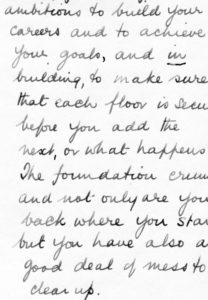 ambitions to build your
careers and to achieve
your goals, and in
building, to make sure
that each floor is secu
before you add the
next, or what happens
The foundation crum
and not only are you
back where you star
but you have also a
good deal of mess to
clear up.